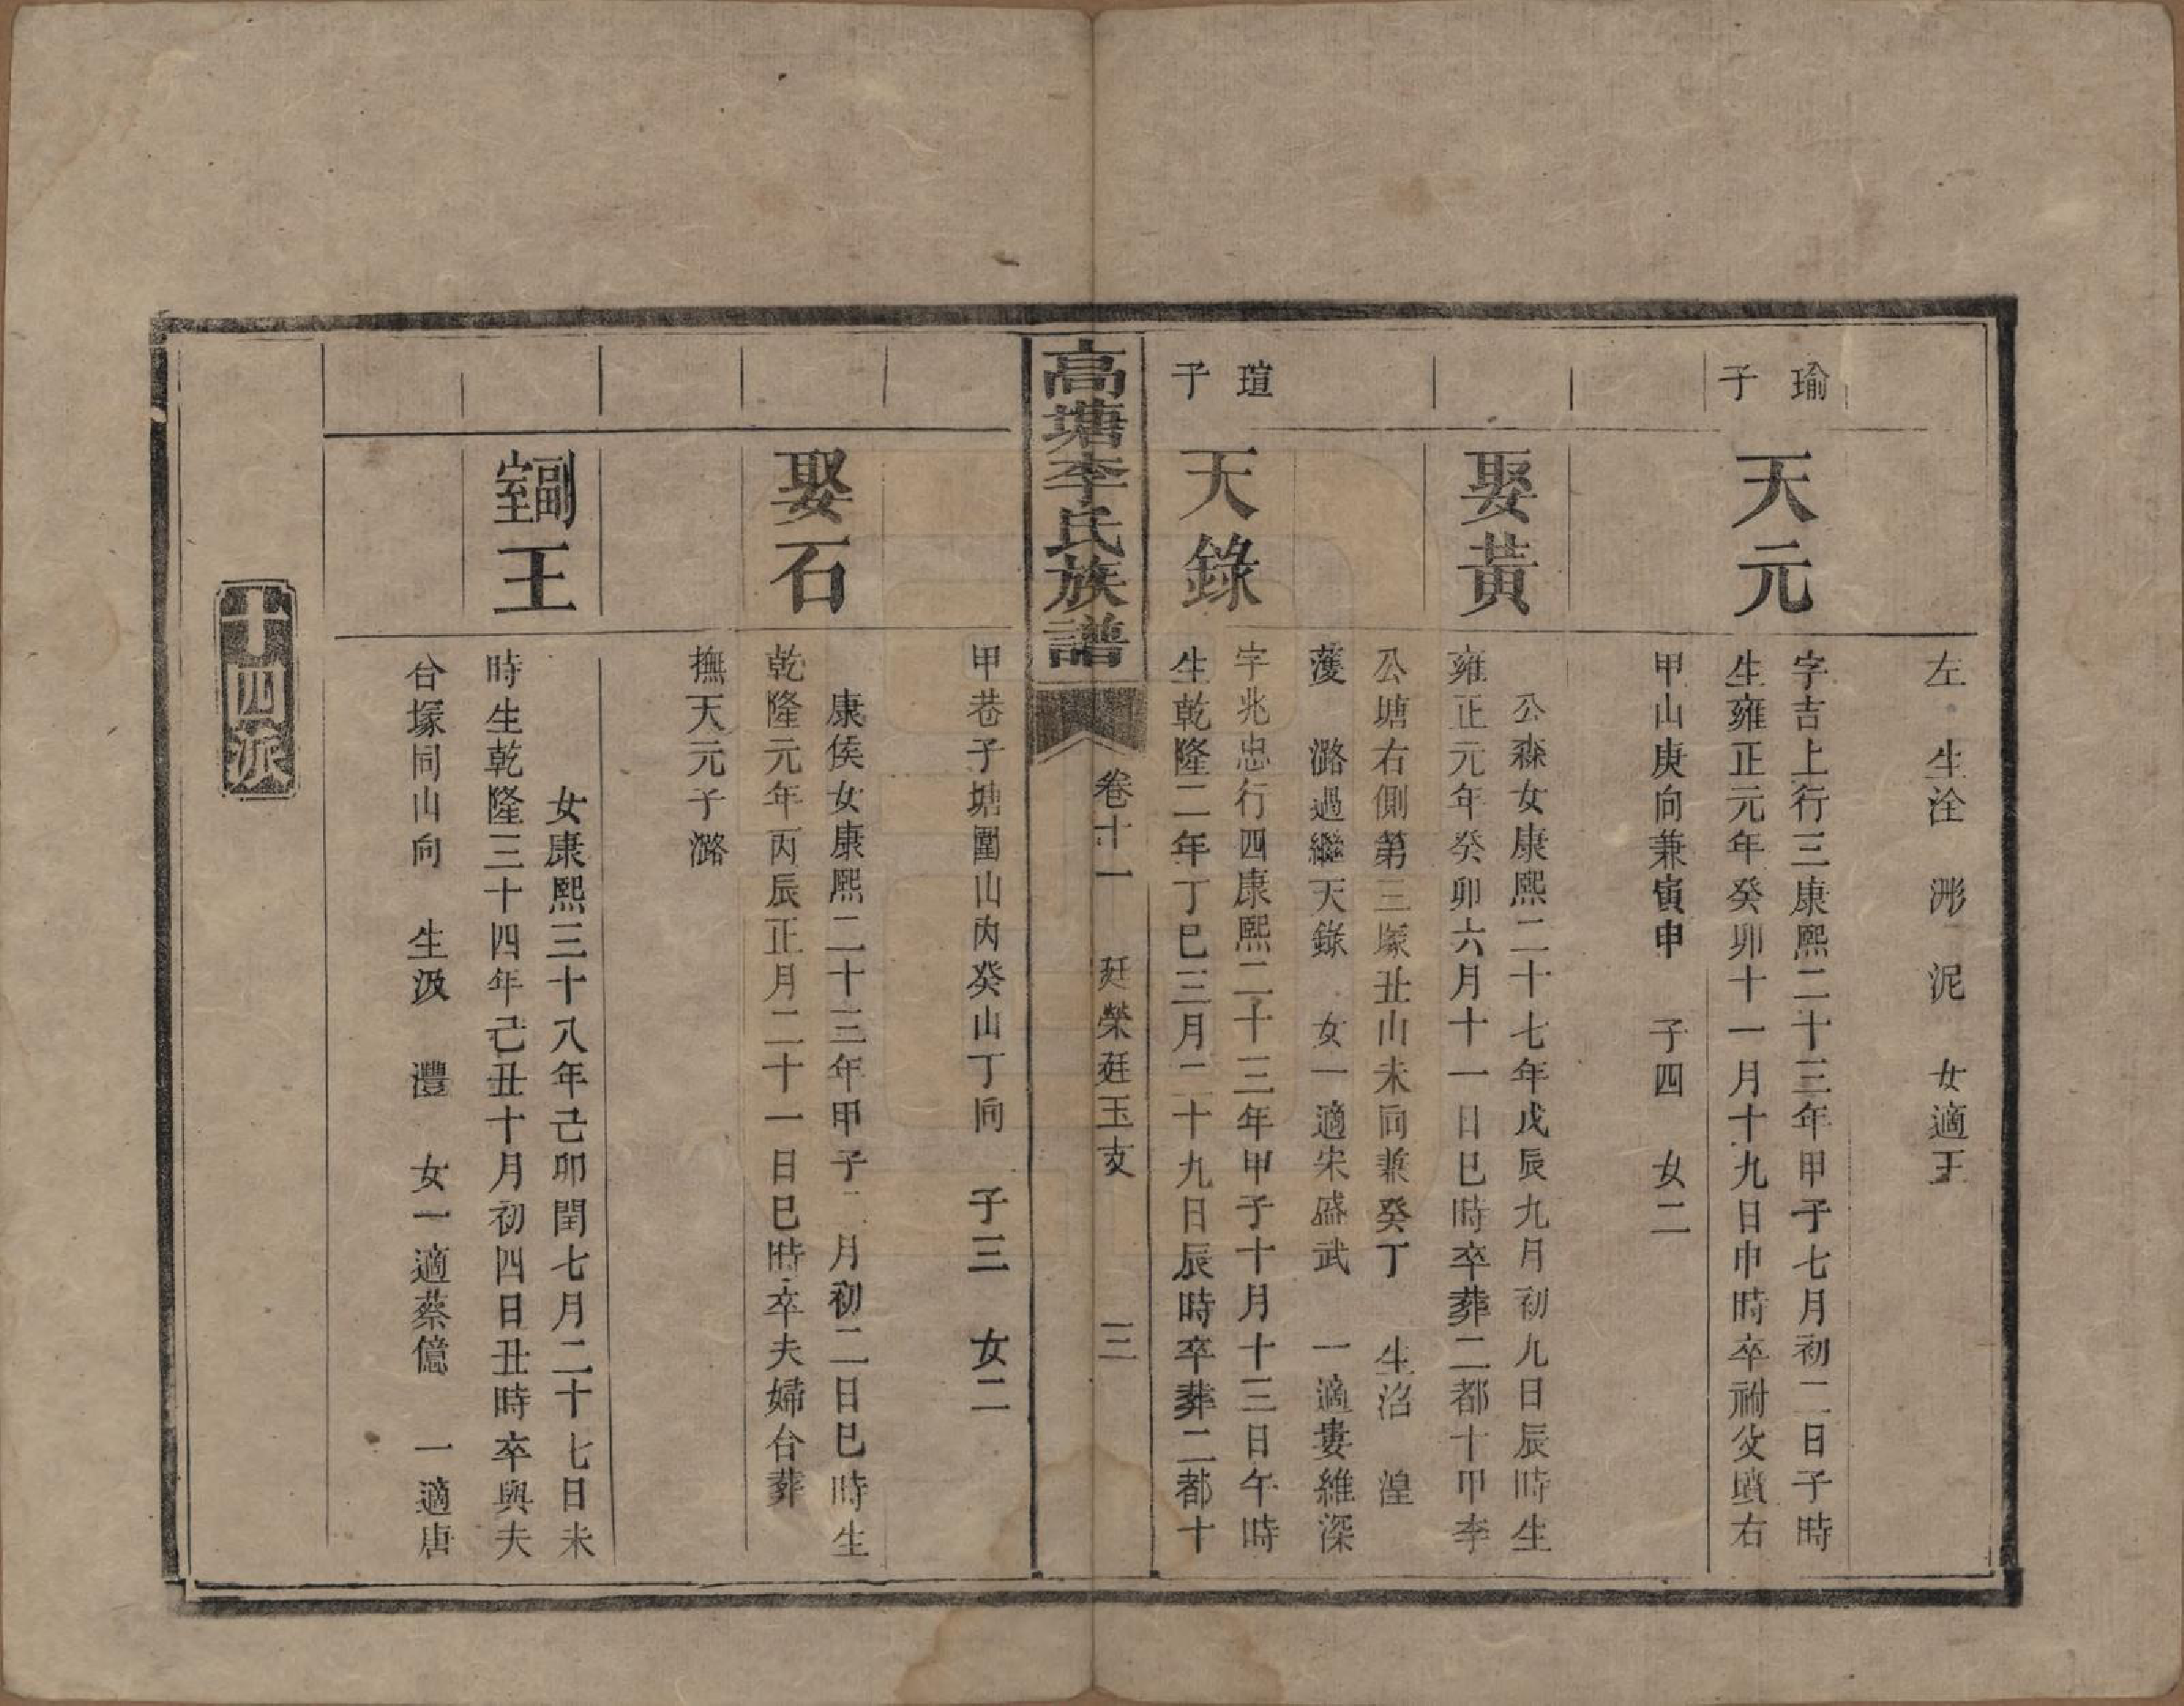 左　生洤　浵　泥　女適王
瑜
子
天元
字吉上行三康熙二十三年甲子七月初二日子時
生雍正元年癸卯十一月十九日申時卒祔父墳右
甲山庚向兼寅申　子四　女二
娶黃
公森女康熙二十七年戊辰九月初九日辰時生
雍正元年癸卯六月十一日巳時卒葬二都十甲李
公塘右側第三塚丑山未向兼癸丁　生沼　湟
濩　潞過繼天錄　女一適宋盛武　一適婁維深
瑄
子
天錄
字兆忠行四康熙二十三年甲子十月十三日午時
生乾隆二年丁巳三月二十九日辰時卒葬二都十
高塘李氏族譜
卷十一　廷榮廷玉支　三
甲巷子塘圍山內癸山丁向　子三　女二
娶石
康侯女康熙二十三年甲子二月初二日巳時生
乾隆元年丙辰正月二十一日巳時卒夫婦合葬
撫天元子潞
副室王
女康熙三十八年己卯閏七月二十七日未
時生乾隆三十四年己丑十月初四日丑時卒與夫
合塚同山向　生汲　灃　女一適蔡億　一適唐
十四派